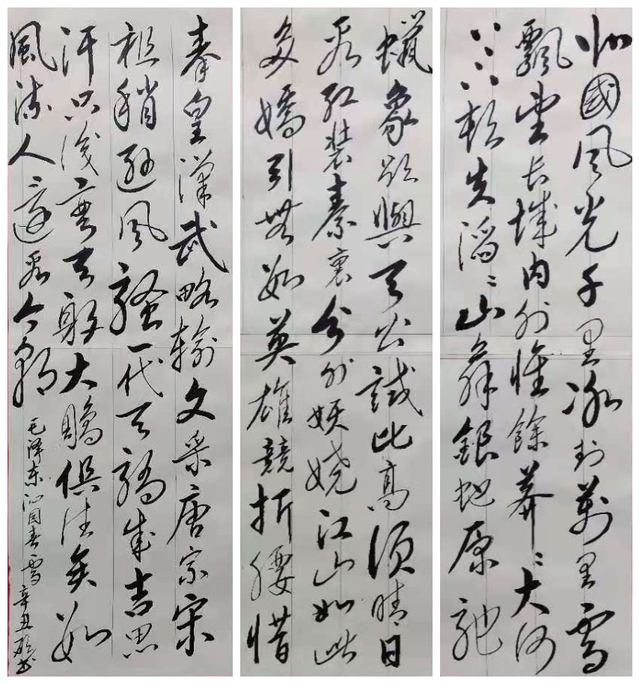 北國风光千里冰封萬里雪
飄望长城内外惟餘莽ミ大河
上下顿失滔ミ山舞銀蛇原驰
蠟象欲與天公試比高須晴日
看红装素裹分外妖娆江山如此
多嬌引無數英雄競折腰惜
秦皇漢武略输文采唐宗宋
祖稍逊风騷一代天骄成吉思
汗只识弯弓射大鵰俱往矣數
風流人物还看今朝
毛泽东沁园春雪 辛丑